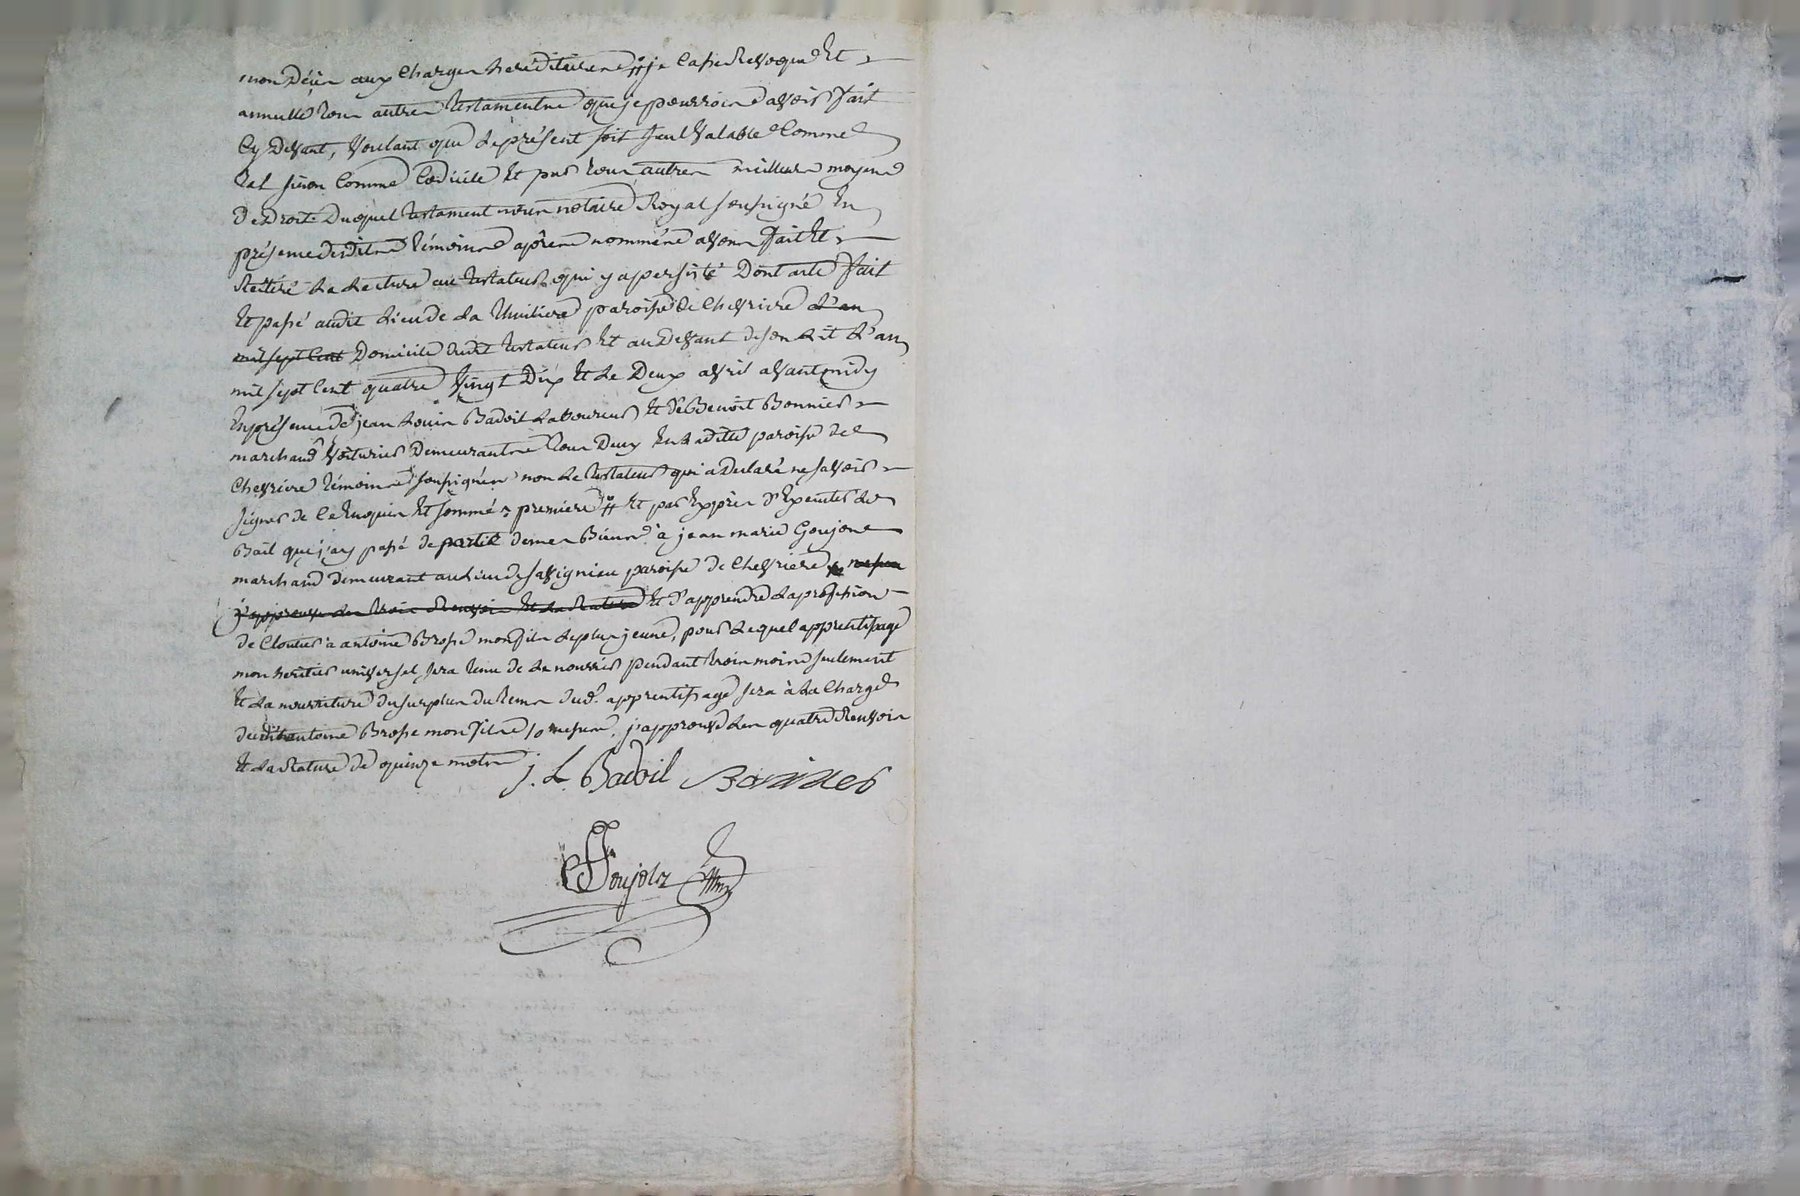 mon décès aux charges héréditaires # je casse révoque et
annulle tous autres testaments que je pourrois avoir fait
cy devant, voulant que le présent soit seul valable comme
tel sinon comme codicile et par tous autres meilleurs moyens
de droit. Duquel testament nous notaire Royal soussigné en
présence desdits témoins après nommés avons fait et
réitéré la lecture au testateur qui y a persisté Dont acte fait
et passé audit lieu de la paroisse de Chevrière l'an
mil sept cent Domicile dudit testateur et au devant de son lit l'an
mil sept cent quatre vingt Dix et le Deux avril avant midy
en présence de jean Louis Badoil laboureur et de Benoit Bonnier
marchand voiturier demeurants tous Deux en ladite paroisse de
Chevrière témoins soussignés non le testateur qui a déclaré ne savoir
signer de ce enquis et sommé # première # et par exprès d'exécuter le
Bail que j'ay passé de partie de mes Biens à jean marie Goujon
marchand demeurant au lieu de Savignieu paroisse de Chevrière
j'approuve les trois renvois et la rature et d'apprendre la profession
de Cloutier à antoine Brosse mon fils le plus jeune, pour lequel apprentissage
mon héritier universel sera tenu de le nourrir pendant trois mois seulement
et la nourriture du surplus du tems dud. apprentissage sera à la charge
dudit antoine Brosse mon fils j'approuve les quatre renvois
et la rature de quinze mots
j. L Badoil Bonnier
Poujolz